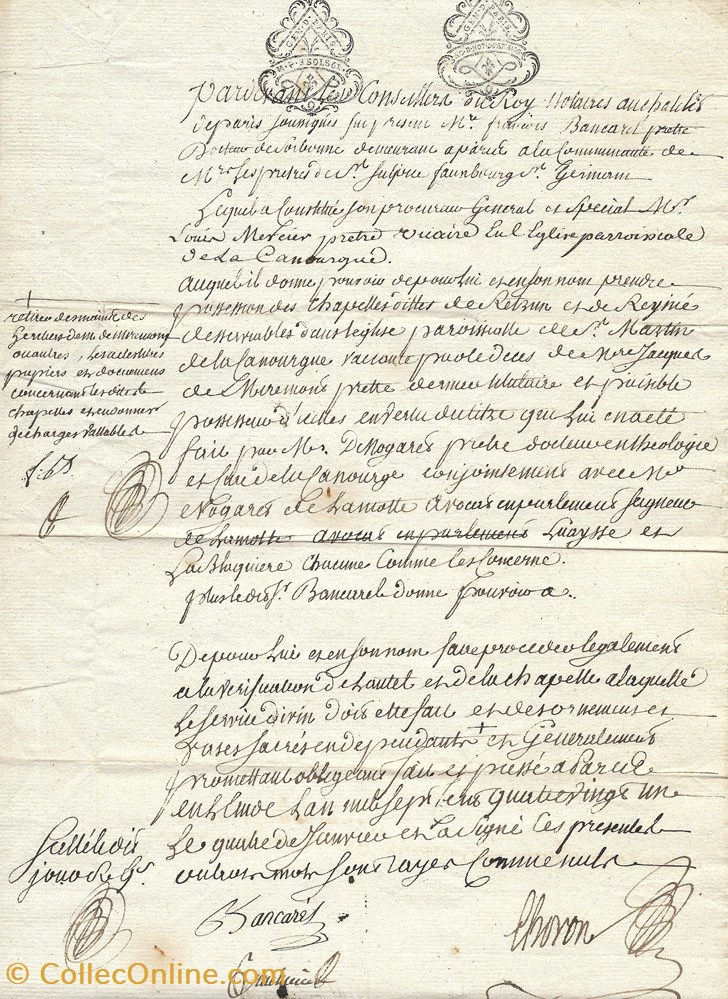 GEN. D. PARIS
GEN. D. PARIS
Pardevant les Conseillers du Roy Notaires au chatelet
de paris soussignés fut present Mr. françois Bancarel pretre
Docteur de sorbonne demeurant a paris a la Communauté de
Mrs. les pretres de St. sulpice fauxbourg St. Germain
Lequel a Constitué son procureur General et Special Mr.
Louis Mercier pretre vicaire en l'Eglise parroissiale
de La Canourgue.
Auquel il donne pouvoir de pour Lui et en son nom prendre
possession des Chapelles dittes de Retrun et de Reynié
deservables dans l'eglise paroissialle de St. Martin
de la Canourgue vacante par le deces de Mtre Jacques
de Miremont pretre dernier titulaire et paisible
possesseur d'icelles en vertu du titre qui Lui en a eté
fait par Mr. De Nogaret pretre docteur en theologie
et curé de la Canourge conjointement avec Mr
Nogaret de Lamotte avocat en parlement seigneur
de Lamotte avocat en parlement Luaysse et
La Blaquiere chacune Comme les Concerne.
plus ledit Sr. Bancarel donne pouvoir a
De pour Lui et en son nom faire proceder legalement
a la verification de l'autel et de la chapelle a laquelle
Le service divin doit etre fait et des ornemens et
Vases sacrés en dependants + et Generalement
promettant obligeant fait et passé a Paris
en l'Etude L'an mil sept cent quatre vingt un
Le quatre de Janvier et a Signé Ces presentes
ou trois mots sont rayés Comme nuls
+
retirer des mains des
heritiers de Mr de miremont
ou autres, les actes titres
papiers et documens
concernant les dites
chapelles et en donner
decharges valables
f. b
Scellé ledit
jour
Bancarel
Choron
© CollecOnline.com